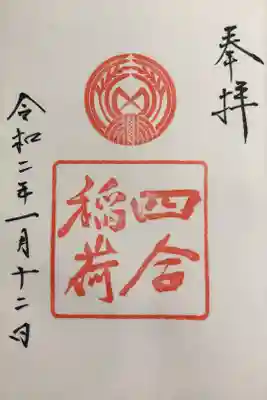 奉拝
四合
稲荷
令和二年一月十二日